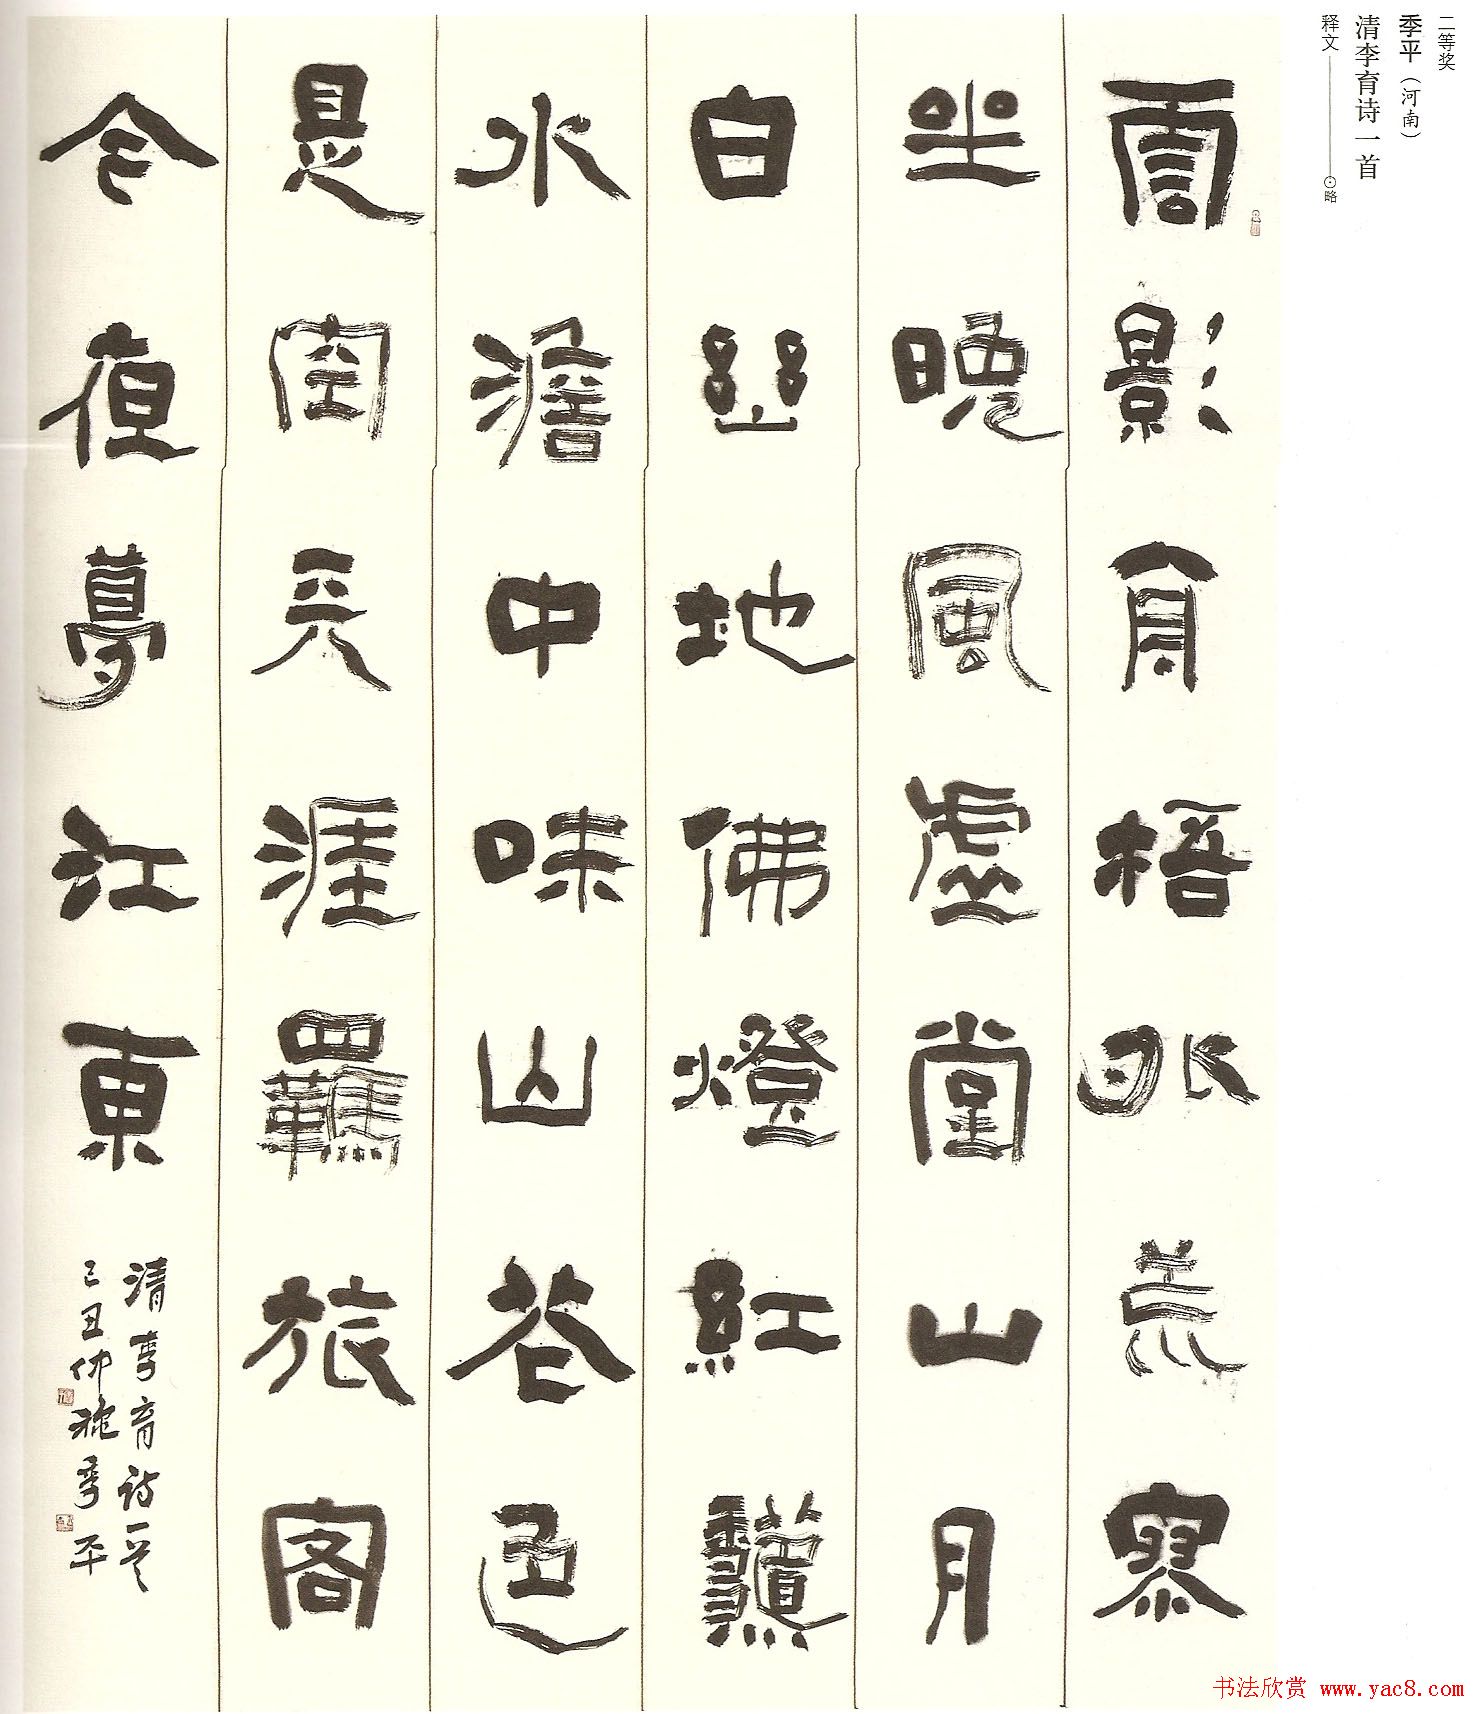 二等奖
季平（河南）
清李育诗一首
释文 略
影梧荒寮
坐晚風虛堂山月
白幽地佛燈紅
水澹中味山花色
是空天涯羈旅客
今夜夢江東
清李育詩一首
己丑仲秋季平
书法欣赏 www.yac8.com